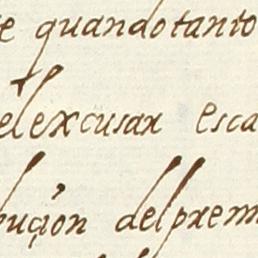 e quando tanto
el excusar esca
bución del prem